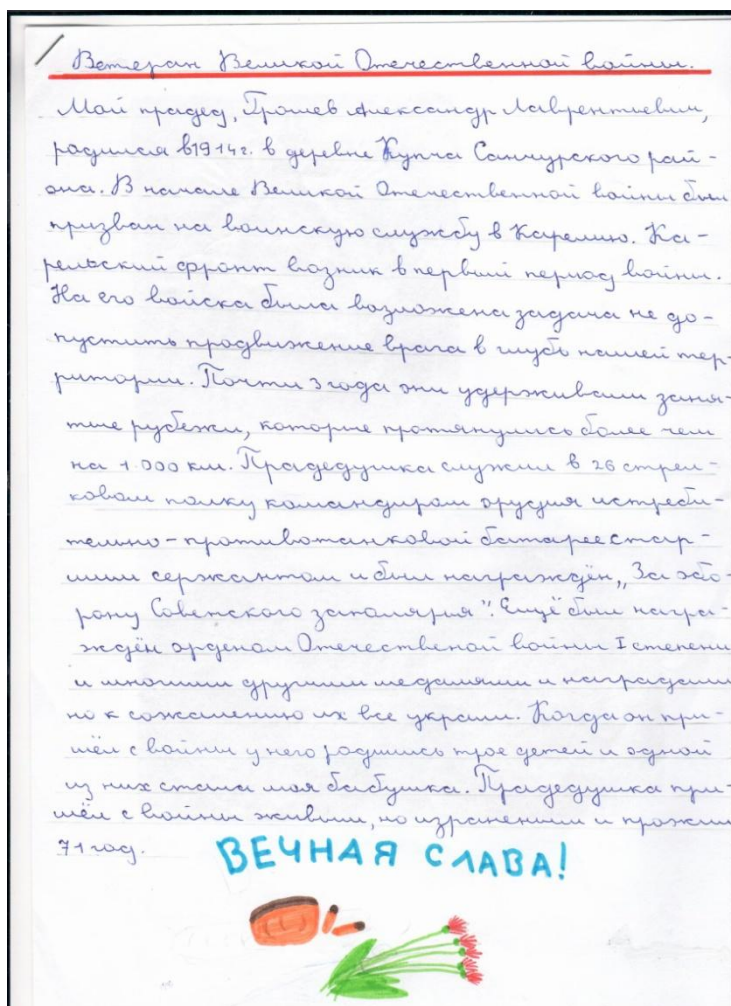 Ветеран Великой Отечественной войны.
Мой прадед, Грошев Александр Лаврентьевич,
родился в 1914г. в деревне Купча Санчурского рай-
она. В начале Великой Отечественной войны был
призван на воинскую службу в Карелию. Ка-
рельский фронт возник в первый период войны.
На его войска была возложена задача не до-
пустить продвижение врага в глубь нашей тер-
ритории. Почти 3 года они удерживали заня-
тые рубежи, которые протянулись более чем
на 1.000 км. Прадедушка служил в 26 стрел-
ковом полку командиром орудия истреби-
тельно-противотанковой батарее стар-
шим сержантом и был награждён „За обо-
рону Советского заполярия". Ещё был награ-
ждён орденом Отечественой войны I степени
и многими другими медалями и наградами
но к сожалению их все украли. Когда он при-
шёл с войны у него родились трое детей и одной
из них стала моя бабушка. Прадедушка при-
шёл с войны живым, но израненым и прожил
71 год.
ВЕЧНАЯ СЛАВА!